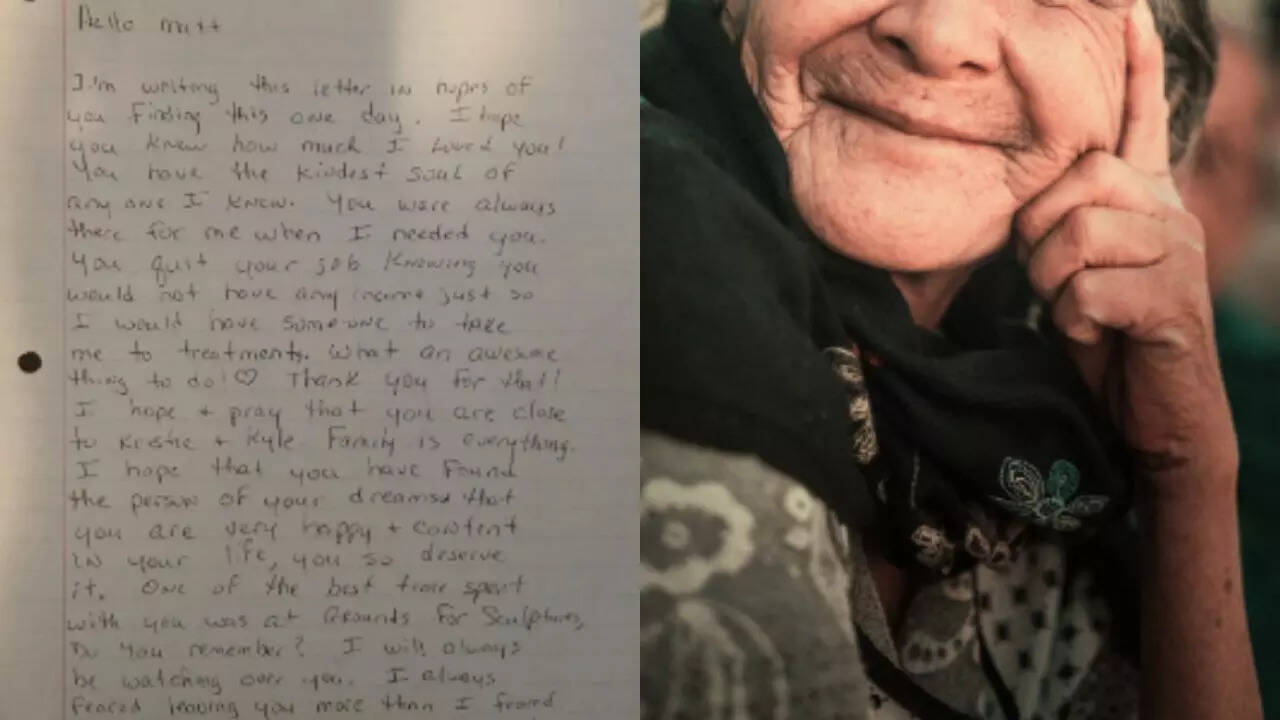 Hello Matt
I'm writing this letter in hopes of
you finding this one day. I hope
you knew how much I loved you!
You have the kindest soul of
anyone I knew. You were always
there for me when I needed you.
You quit your job knowing you
would not have any income just so
I would have someone to take
me to treatments. What an awesome
thing to do! ♡ Thank you for that!
I hope + pray that you are close
to Kristie + Kyle Family is everything.
I hope that you have found
the person of your dreams that
you are very happy + content
in your life, you so deserve
it. One of the best time spent
with you was at Grounds For Sculptures,
Do you remember? I will always
be watching over you. I always
feared leaving you more than I feared